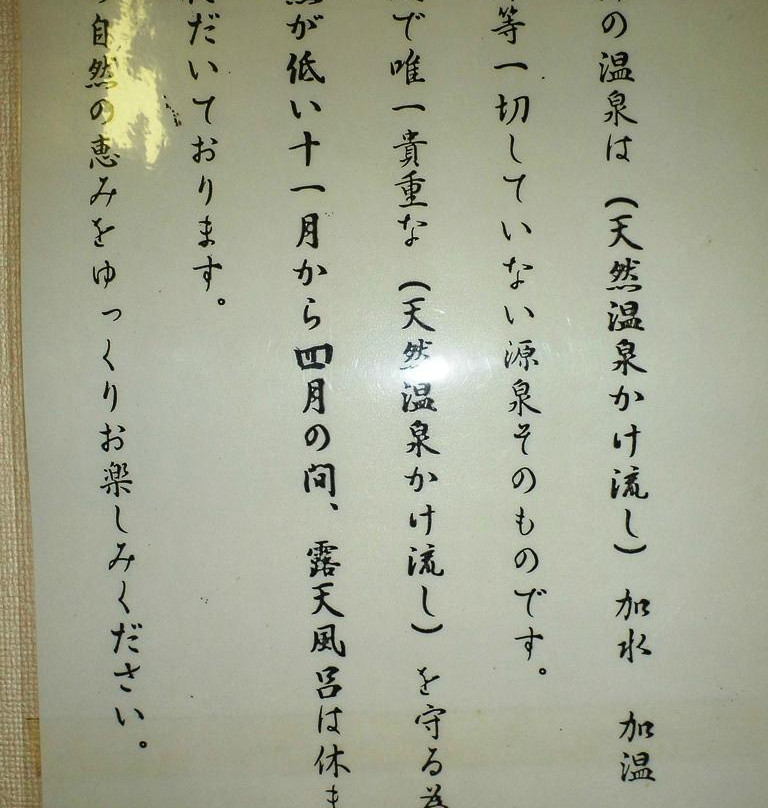 の温泉は(天然温泉かけ流し)加水 加温
等一切していない源泉そのものです。
で唯一貴重な(天然温泉かけ流し)を守る為
が低い十一月から四月の間、露天風呂は休ま
だいております。
自然の恵みをゆっくりお楽しみください。